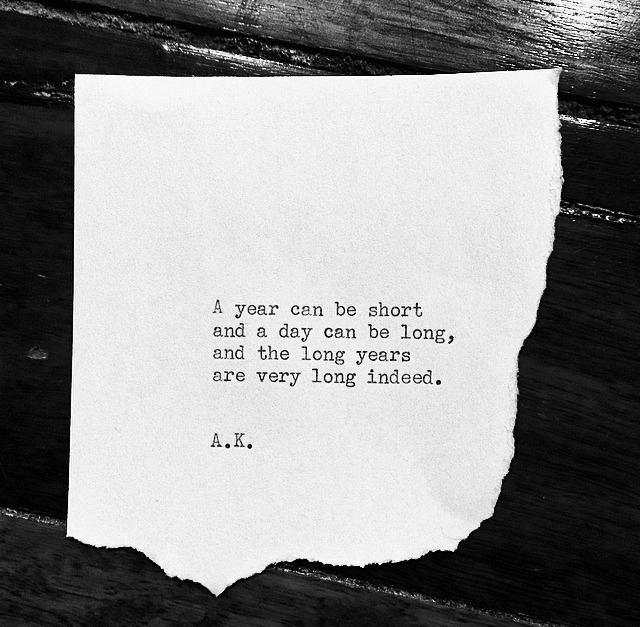 A year can be short
and a day can be long,
and the long years
are very long indeed.
A.K.